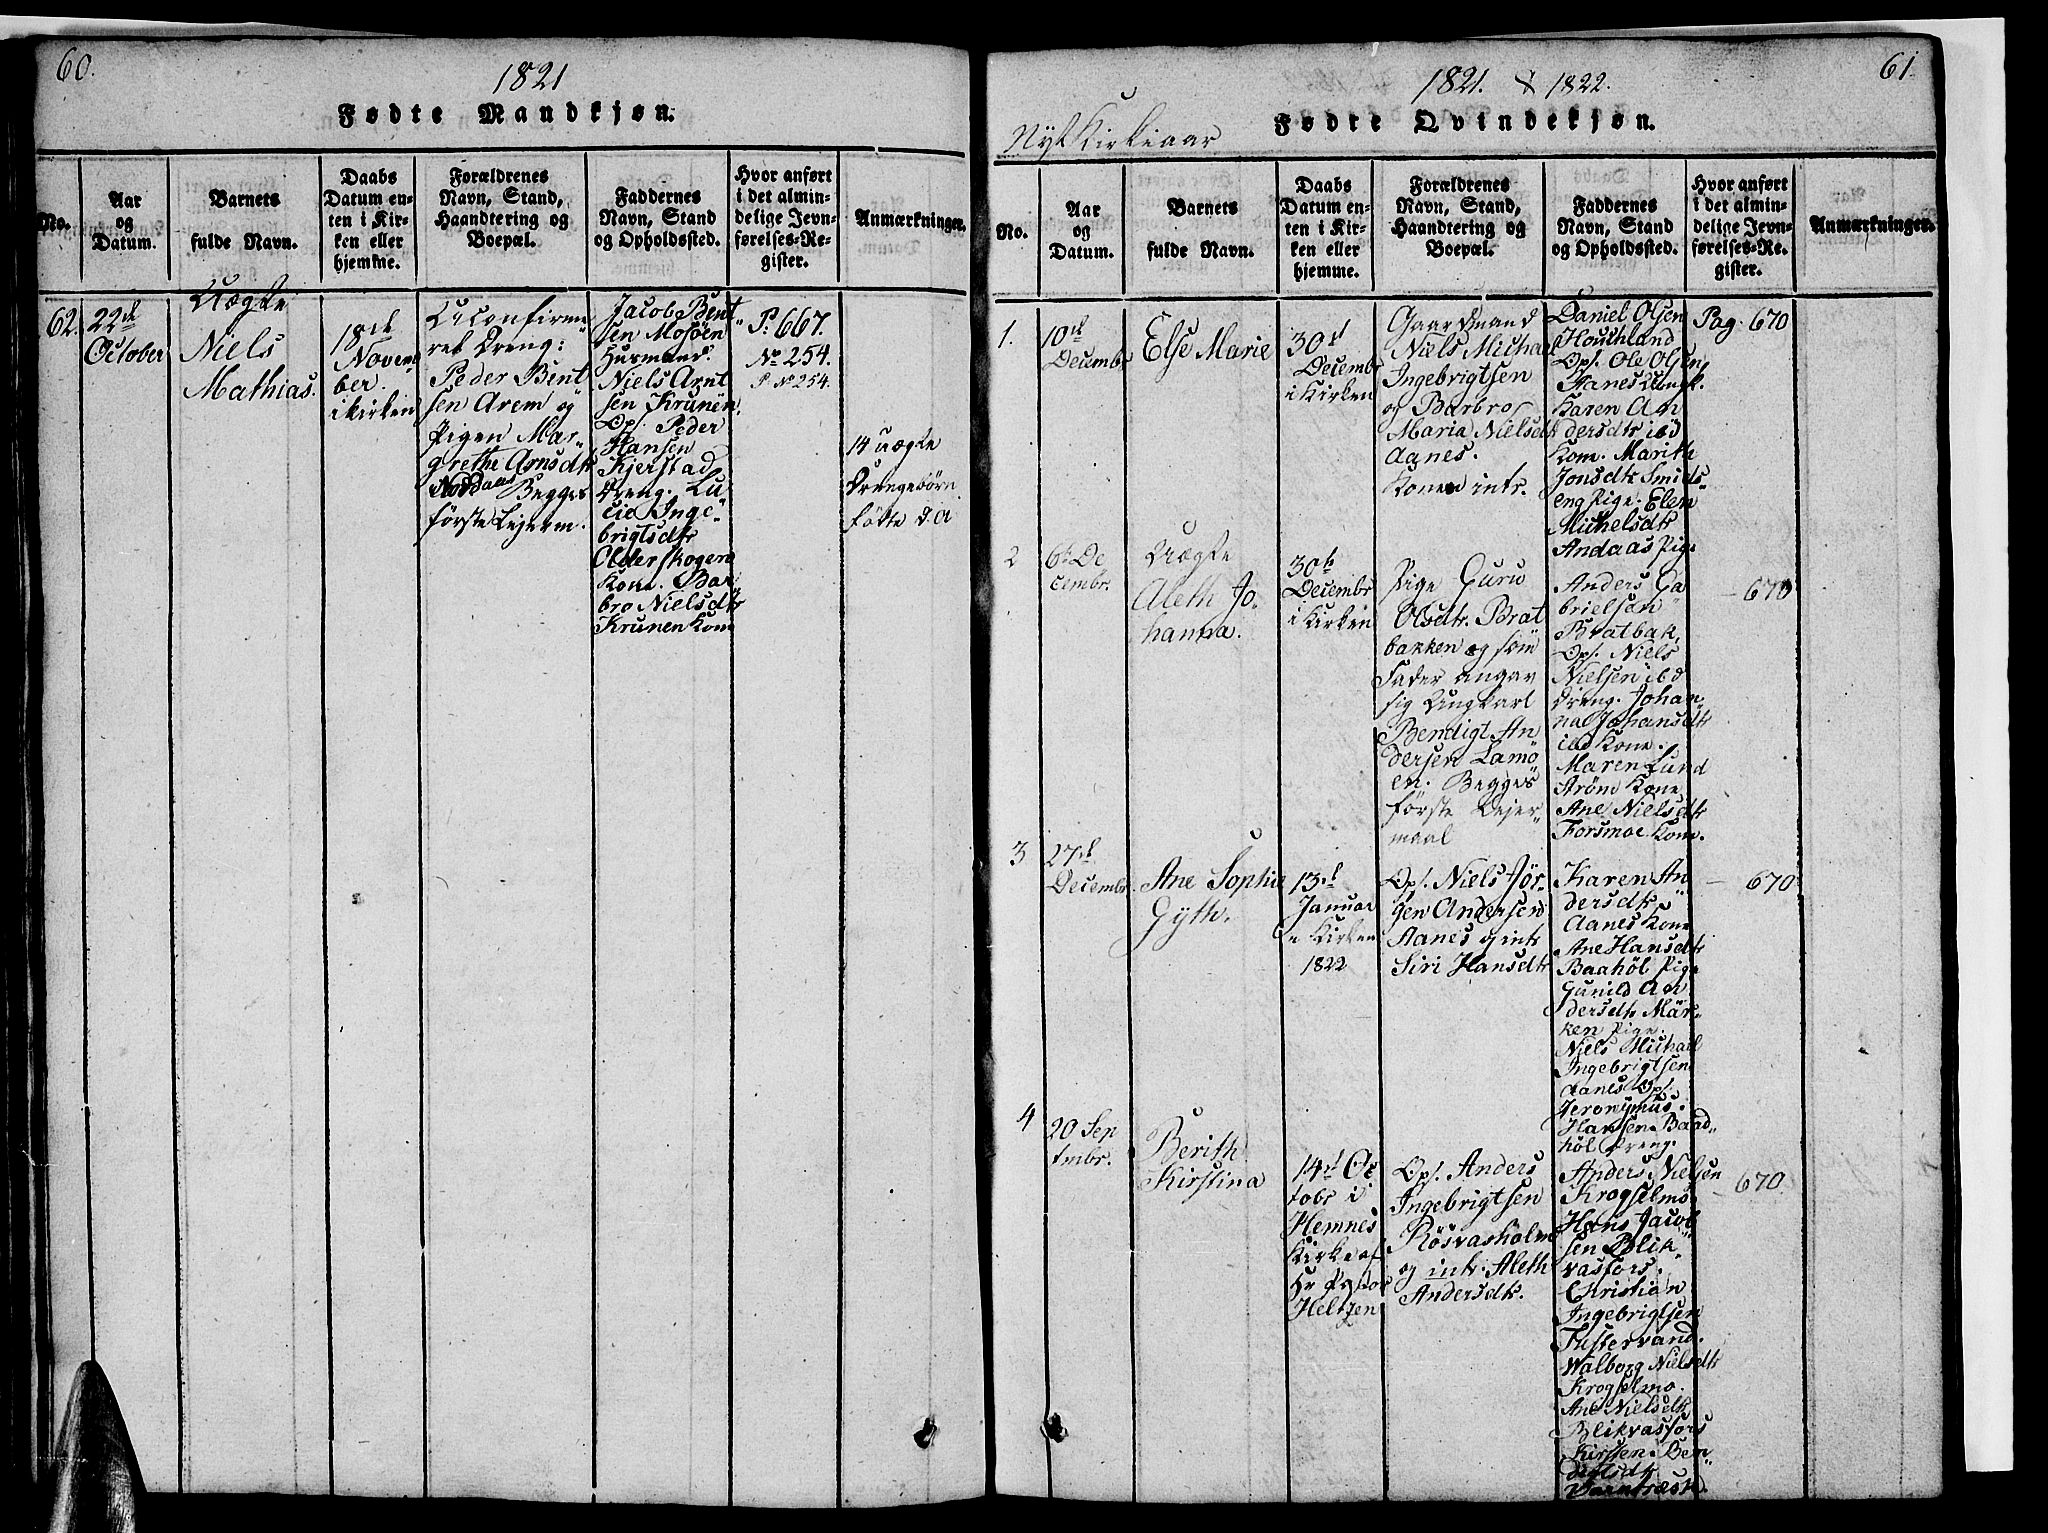 60.
1821
Fødte Mandkjøn.
No.
Aar
og
Datum.
Barnets
fulde Navn.
Daabs
Datum en-
ten i Kir-
ken eller
hjemme.
Forældrenes
Navn, Stand,
Haandtering og
Boepæl.
Faddernes
Navn, Stand
og Opholdssted.
Hvor anført
i det almin-
delige Jevn-
førelses-Re-
gister.
Anmærkninger.
62.
22de
October
Uægte
Niels
Mathias.
18de
Novem
ber.
i kirken
Uconfirme
ret Dreng:
Peder Bent
sen Arem og
Pigen Mar-
grethe Arnsdtr
Begges
første Lejerm.
Jacob Bent
sen Mosøen
Huusmand.
Niels Arnt
sen Krunen
Ops. Peder
Hansen
Kjerstad
Dreng. Lu-
cie Inge-
brigtsdtr
Olderskogen
Kone. Bar
bro Nielsdtr
Krunen Kone
P. 667.
No 254.
P. No 254.
14 uægte
Drengebørn
fødte d. A
61.
1821. & 1822.
Nyt Kirkiaar
Fødte Qvindekjøn.
No.
Aar
og
Datum.
Barnets
fulde Navn.
Daabs
Datum en-
ten i Kir-
ken eller
hjemme.
Forældrenes
Navn, Stand,
Haandtering og
Boepæl.
Faddernes
Navn, Stand
og Opholdssted.
Hvor anført
i det almin-
delige Jevn-
førelses-Re-
gister.
Anmærkninger.
1.
10de
Decembr
Else Marie
30te
Decembr
i Kirken
Gaardmand
Niels Michael
Ingebrigtsen
og Barbro
Maria Nielsdtr
Aanes.
Konen intr.
Daniel Olsen
Houkland
Ops. Ole Olsen
Aanes Ungk.
Karen An
dersdtr ibd
Kone. Marith
Jonsdtr Smids-
eng Pige. Elen
Michelsdtr
Andaas Pige
Pag. 670
2
6te De
cembr.
Uægte
Aleth Jo-
hanna.
30te
Decembr
i Kirken
Pige Guru
Olsdtr. Brat
bakken og som
Fader angav
sig Ungkarl
Bendigt An
dersen Lamø
en. Begges
første Lejer-
maal
Anders Ga
brielsen
Bratbak,
Ops. Niels
Nielsen ibd
Dreng. Johan-
na Johansdtr
ibd Kone.
Maren Lund
strøm Kone
Ane Nielsdtr
Forsmoe Kone.
— 670
3
27de
Decembr.
Ane Sophie
Gyth.
13de
Januar
i Kirken
1822
Ops. Niels Jør-
gen Andersen
Aanes og intr
Siri Hansdtr
Karen An
dersdtr
Aanes Kone
Ane Hansdtr
Baahøl Pige
Gunild An
dersdtr Mär-
ken Pige.
Niels Michael
Ingebrigtsen
Aanes Ops.
Jeronymus
Hansen Baad-
høl Dreng.
— 670
4
20 Sep
tmbr.
Berith
Kirstina
14de Oc
tobr i
Hemnes
Kirke af
Hr Pastor
Heltzen
Ops. Anders
Ingebrigtsen
Røsvasholm
og intr. Aleth
Andersdtr.
Anders Nielsen
Krogselmo
Hans Jacob
sen Blik-
vasfors.
Christian
Ingebrigtsen
Tustervand.
Walborg Nielsdtr
Krogselmo.
Ane Nielsdtr
Blikvasfors
Kirsten Ben
digtsdtr
— 670